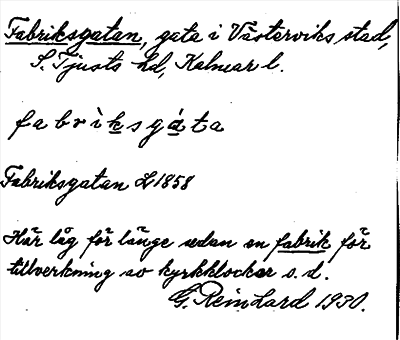 Fabriksgatan, gata i Västerviks stad,
S. Tjusts hd, Kalmar l.
fabrìksgáta
Fabriksgatan L 1858
Här låg för länge sedan en fabrik för
tillverkning av kyrkklockor o. d.
G. Reinhard 1930.